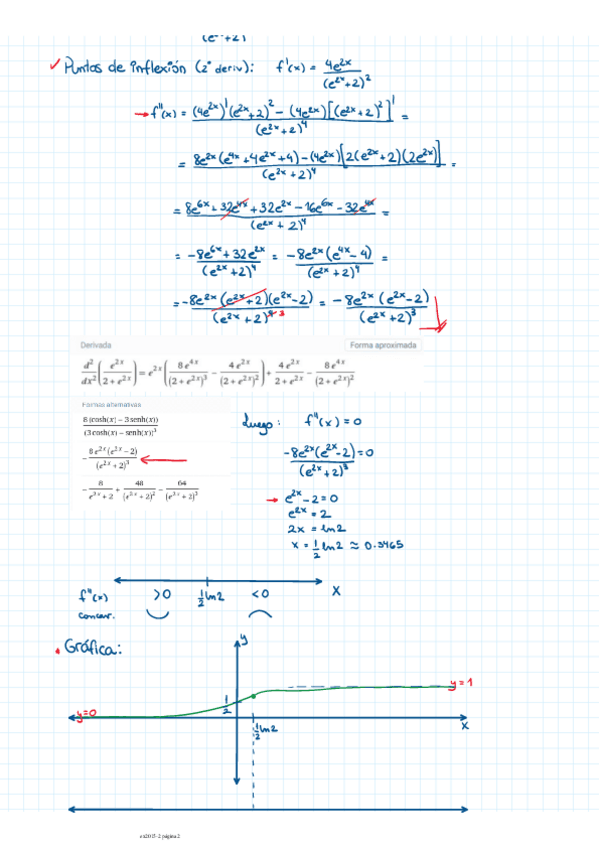 (e²ˣ+2)
✓ Puntos de inflexión (2ª deriv): f'(x) = 4e²ˣ / (e²ˣ+2)²
→ f''(x) = (4e²ˣ)'(e²ˣ+2)² - (4e²ˣ)[(e²ˣ+2)²]' / (e²ˣ+2)⁴ =
= 8e²ˣ(e⁴ˣ+4e²ˣ+4) - (4e²ˣ)[2(e²ˣ+2)(2e²ˣ)] / (e²ˣ+2)⁴ =
= 8e⁶ˣ + 32e⁴ˣ + 32e²ˣ - 16e⁶ˣ - 32e⁴ˣ / (e²ˣ+2)⁴ =
= -8e⁶ˣ + 32e²ˣ / (e²ˣ+2)⁴ = -8e²ˣ(e⁴ˣ-4) / (e²ˣ+2)⁴ =
= -8e²ˣ(e²ˣ+2)(e²ˣ-2) / (e²ˣ+2)⁴ ³ = -8e²ˣ(e²ˣ-2) / (e²ˣ+2)³
Derivada Forma aproximada
d²/dx² (e²ˣ / (2+e²ˣ)) = e²ˣ (8e⁴ˣ / (2+e²ˣ)³ - 4e²ˣ / (2+e²ˣ)²) + 4e²ˣ / (2+e²ˣ) - 8e⁴ˣ / (2+e²ˣ)²
Formas alternativas
8(cosh(x) - 3 senh(x)) / (3 cosh(x) - senh(x))³
- 8e²ˣ(e²ˣ-2) / (e²ˣ+2)³
- 8 / (e²ˣ+2) + 48 / (e²ˣ+2)² - 64 / (e²ˣ+2)³
Luego: f''(x) = 0
-8e²ˣ(e²ˣ-2) / (e²ˣ+2)³ = 0
→ e²ˣ-2=0
e²ˣ = 2
2x = ln2
x = 1/2 ln2 ≈ 0.3465
f''(x) >0 1/2 ln2 <0 x
concav.
• Gráfica:
y
y=1
1/2
y=0
x
1/2 ln2
ex2015-2 página 2